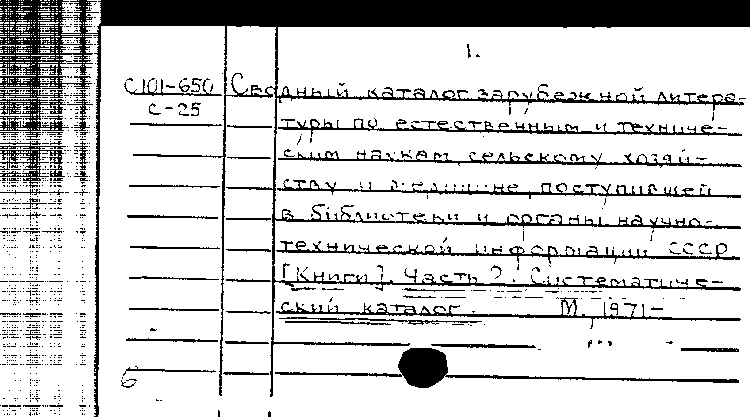 1.
С101-650 Сводный каталог зарубежной литера-
С-25
туры по естественным и техниче-
ским наукам, сельскому хозяй-
ству и медицине, поступившей
в библиотеки и органы научно-
технической информации СССР
[Книги]. Часть 2. Систематиче-
ский каталог. М., 1971-
...
б